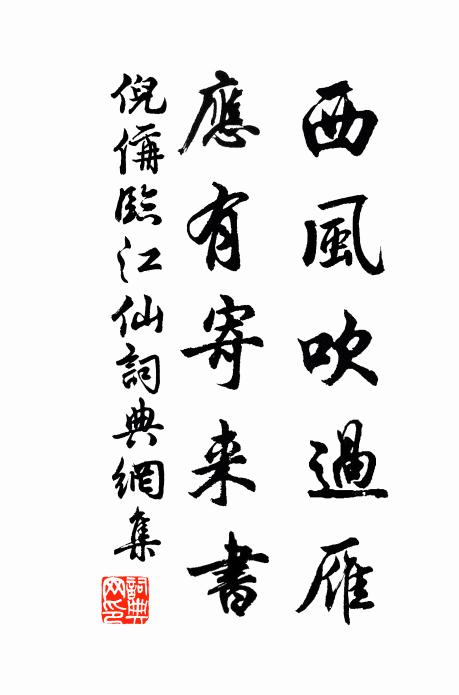 西風吹過雁
應有寄来書
倪偁臨江仙詞典網集
詞典網印